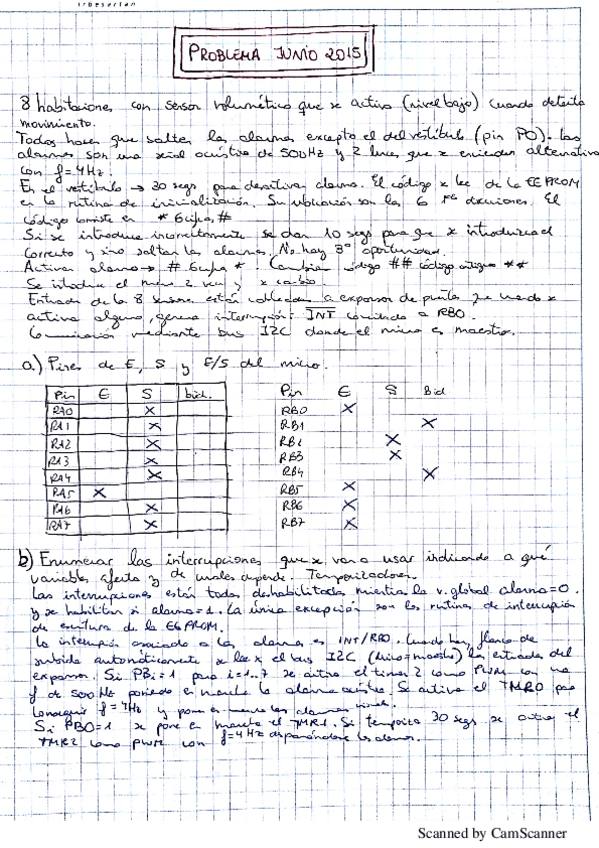 irbesartan
PROBLEMA JUNIO 2015
8 habitaciones con sensor volumétrico que se activa (nivel bajo) cuando detecta
movimiento.
Todos hacen que salten las alarmas excepto el del vestíbulo (pin P0). Las
alarmas son una señal acústica de 500Hz y 2 luces que se encienden alternativa
con f=4Hz.
En el vestíbulo → 30 segs para desactivar alarma. El código se lee de la EEPROM
en la rutina de inicialización. Su ubicación son las 6 direcciones. El
código consiste en * 6 cifras #
Si se introduce incorrectamente se dan 10 segs para que se introduzca el
correcto y sino saltan las alarmas. No hay 3ª oportunidad.
Activar alarma → # 6 cifras *. Cambiar código ## código antiguo **
Se introduce el nuevo 2 veces y se cambia.
Entradas de los 8 sensores están conectadas a expansor de puertos que cuando se
activa alguno, genera interrupción: INT conectada a RB0.
Comunicación mediante bus I2C donde el micro es maestro.
a) Pines de E, S y E/S del micro.
Pin E S bid. Pin E S Bid
RA0 X RB0 X
RA1 X RB1 X
RA2 X RB2 X
RA3 X RB3 X
RA4 X RB4 X
RA5 X RB5 X
RA6 X RB6 X
RA7 X RB7 X
b) Enumerar las interrupciones que se van a usar indicando a qué
variables afecta y de cuales depende. Temporizadores.
Las interrupciones están todas deshabilitadas mientras la v. global alarma=0.
y se habilitan si alarma=1. La única excepción son las rutinas de interrupción
de escritura de la EEPROM.
La interrupción asociada a las alarmas es INT/RB0. Cuando hay flanco de
subida automáticamente se lee x el bus I2C (micro=maestro) las entradas del
expansor. Si PBi=1 para i=1..7 se activa el timer 2 como PWM con una
f de 500Hz poniendo en marcha la alarma acústica. Se activa el TMR0 para
conseguir f=4Hz y poner en marcha las alarmas
Si PB0=1 se pone en marcha el TMR1. Si temporiza 30 segs se activa el
TMR2 como PWM con f=4Hz disparándose las alarmas.
Scanned by CamScanner